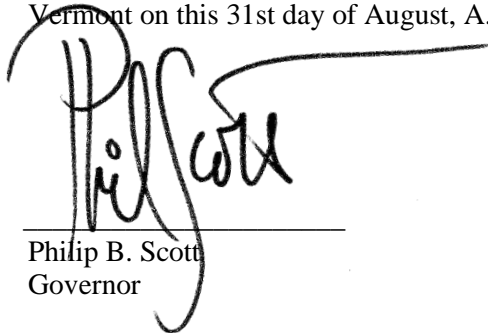 Vermont on this 31st day of August, A.
Phil Scott
Philip B. Scott
Governor